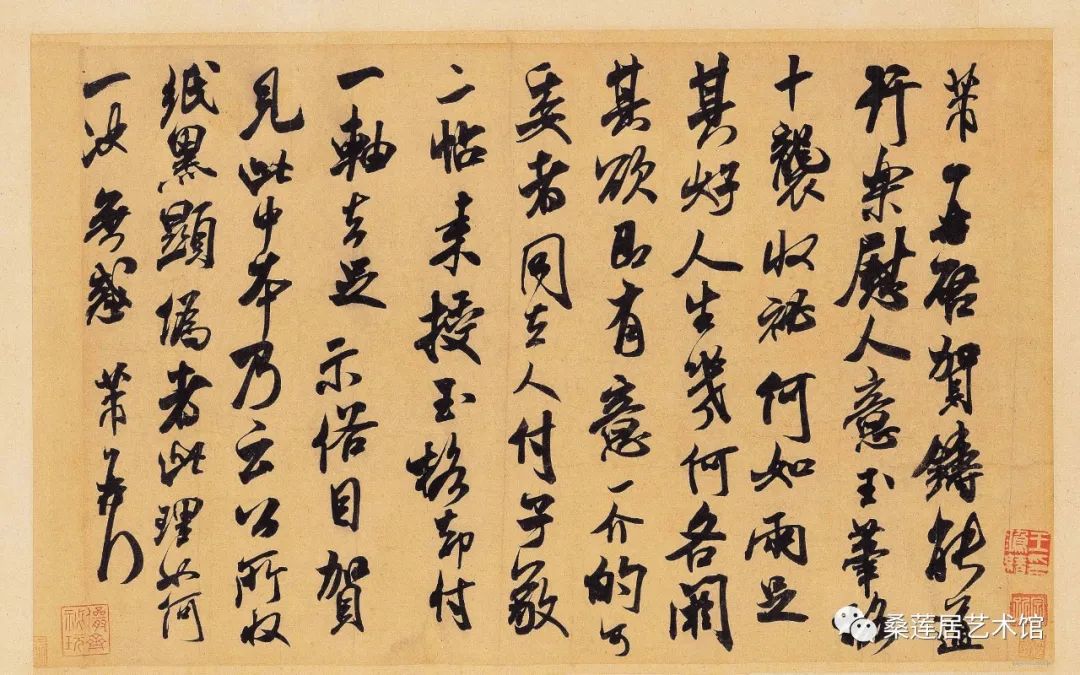 芾頓首啓賀鑄能道
行樂慰人意玉筆格
十襲收祕何如兩足
其好人生幾何各闕
其欲即有意一介的可
委者同去人付子敬
二帖來授玉格却付
一軸去足示俗目賀
見此中本乃云公所收
紙黑顯偽者此理如何
一决無惑芾頓首
桑莲居艺术馆